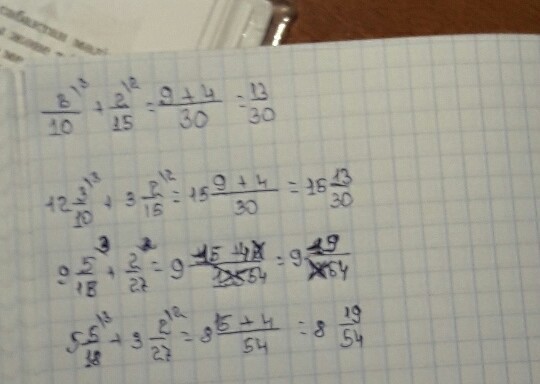 сабақтың мақ
3/10 \3 + 2/15 \2 = (9 + 4)/30 = 13/30
12 3/10 \3 + 3 2/15 \2 = 15 (9 + 4)/30 = 15 13/30
9 5/18 \3 + 2/27 \2 = 9 (15 + 4)/54 = 9 19/54
5 5/18 \3 + 3 2/27 \2 = 8 (15 + 4)/54 = 8 19/54